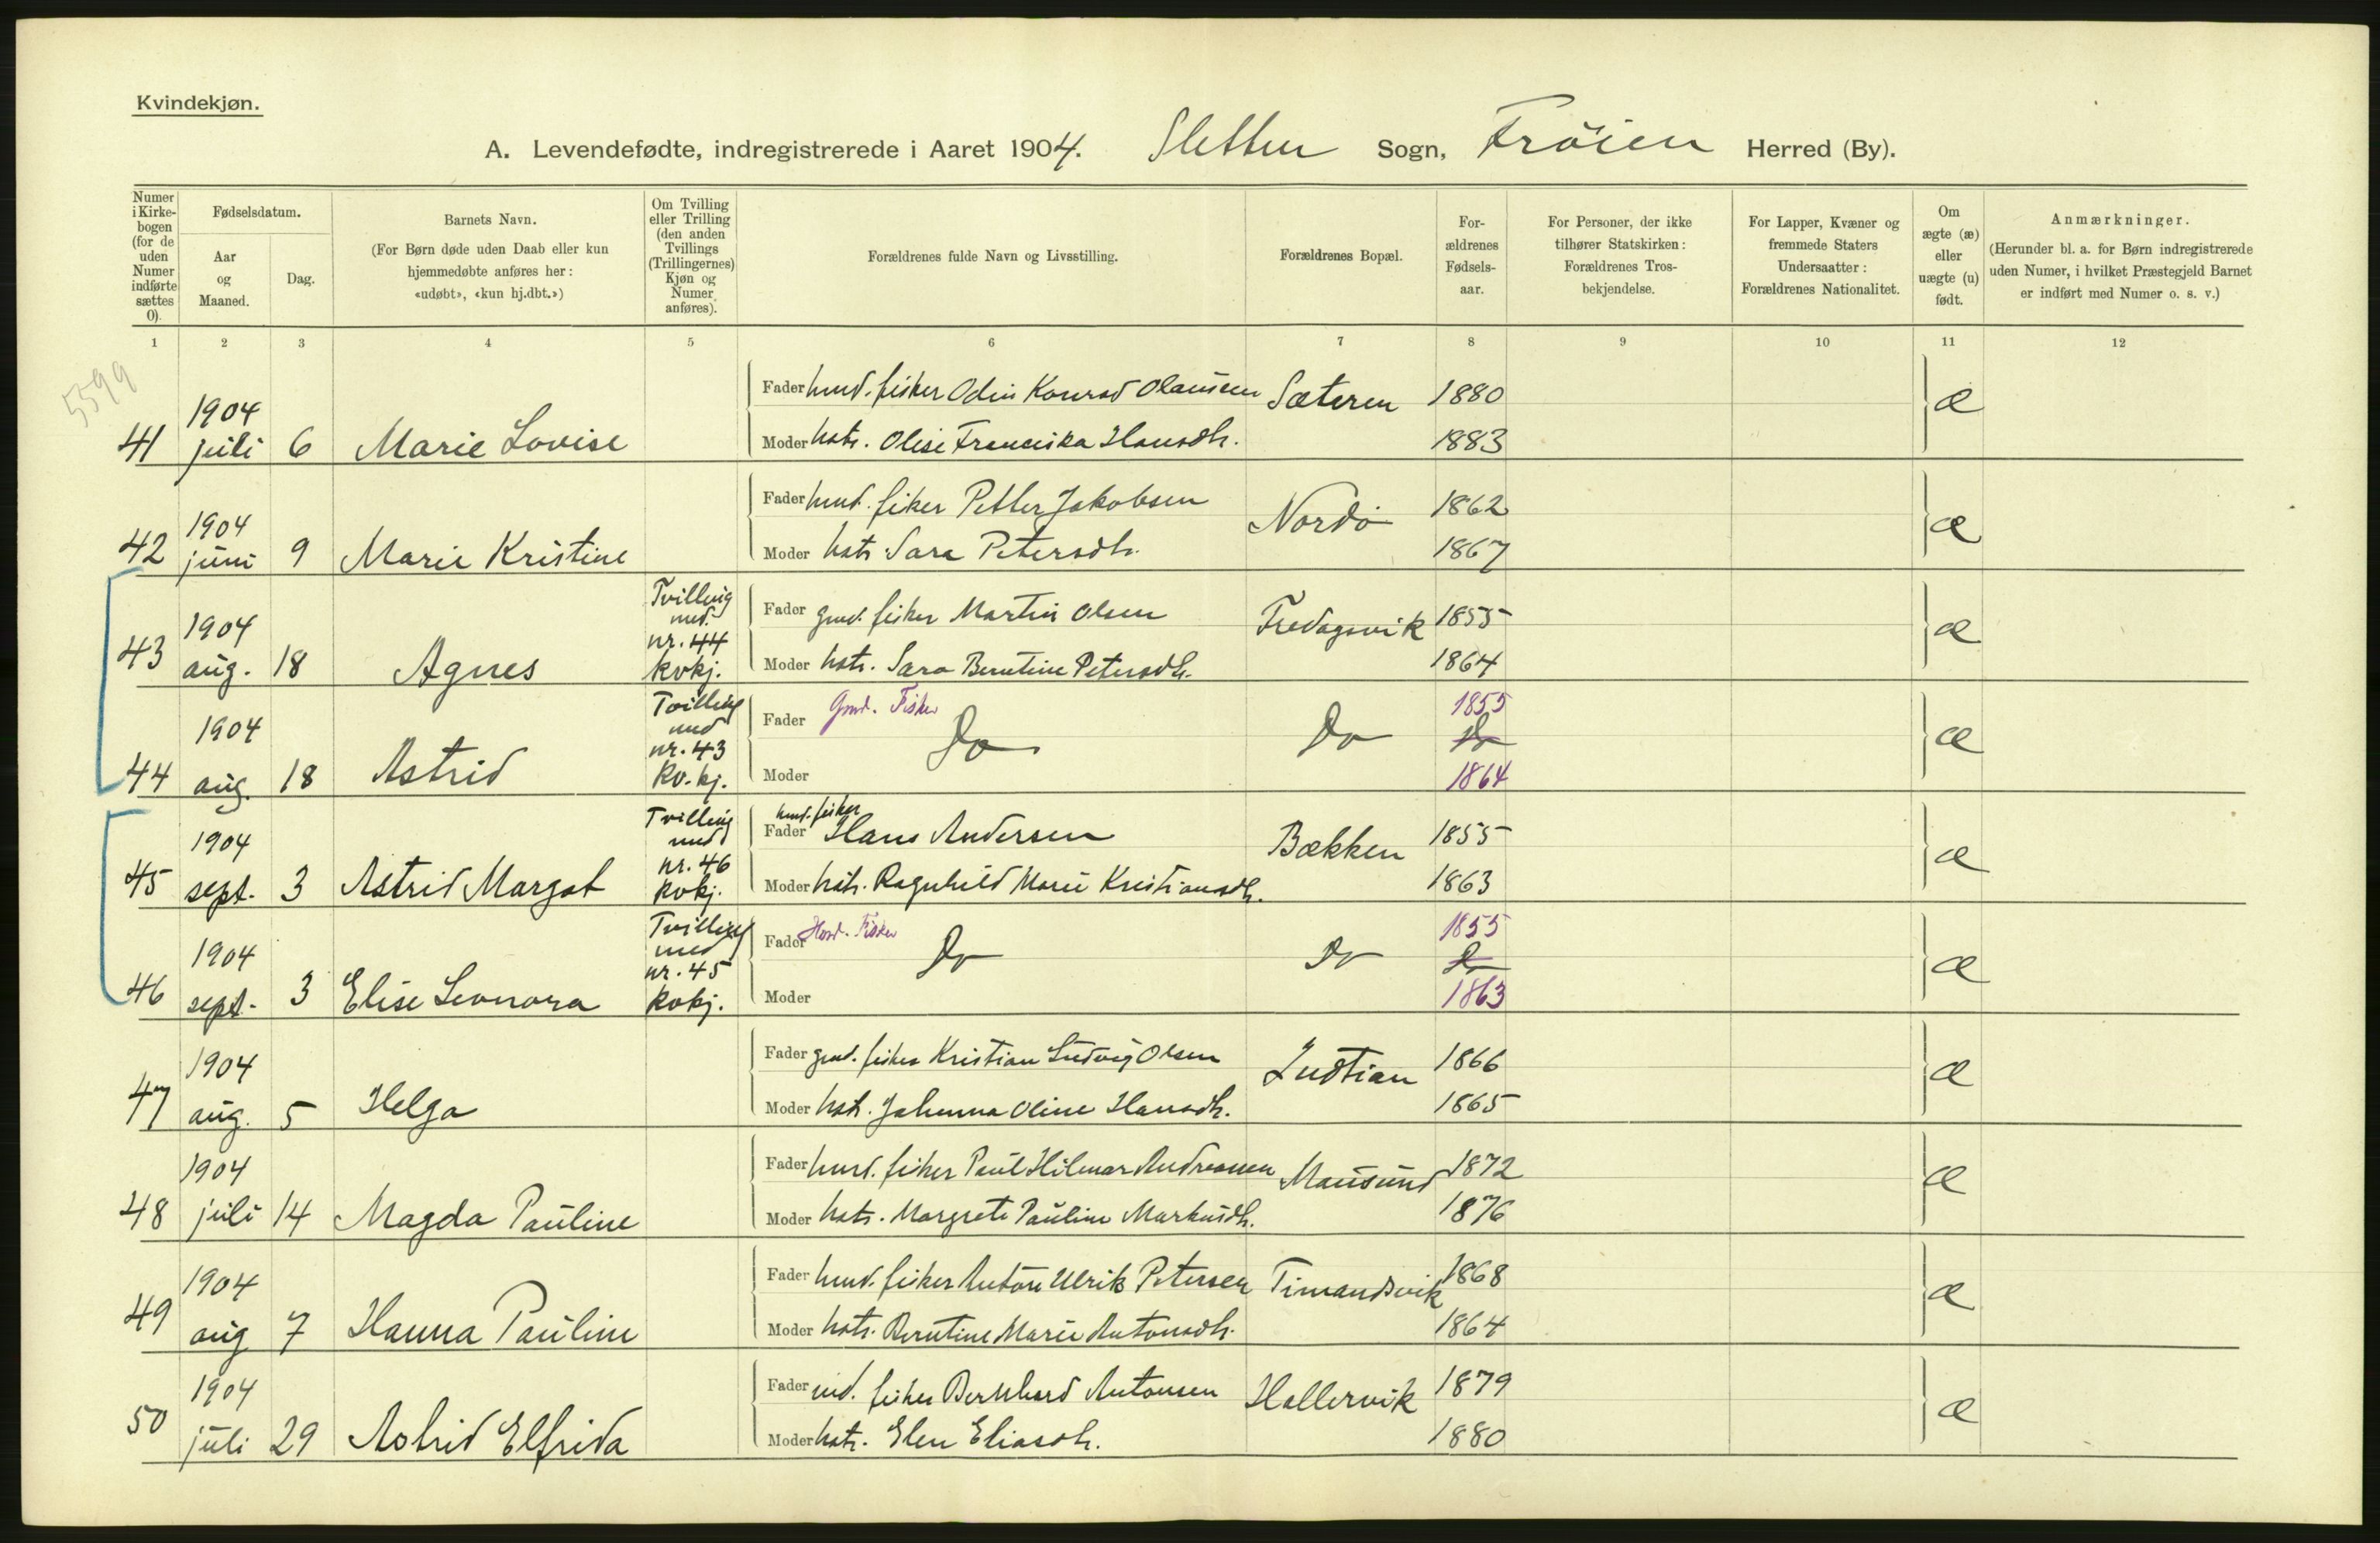 Kvindekjøn.
A. Levendefødte, indregistrerede i Aaret 1904. Sletten Sogn, Frøien Herred (By).
Numer i Kirkebogen (for de uden Numer indførte sættes 0).
Fødselsdatum.
Aar og Maaned.
Dag.
Barnets Navn.
(For Børn døde uden Daab eller kun hjemmedøbte anføres her: «udøbt», «kun hj.dbt.»)
Om Tvilling eller Trilling (den anden Tvillings (Trillingernes) Kjøn og Numer anføres).
Forældrenes fulde Navn og Livsstilling.
Forældrenes Bopæl.
Forældrenes Fødselsaar.
For Personer, der ikke tilhører Statskirken: Forældrenes Trosbekjendelse.
For Lapper, Kvæner og fremmede Staters Undersaatter: Forældrenes Nationalitet.
Om ægte (æ) eller uægte (u) født.
Anmærkninger.
(Herunder bl. a. for Børn indregistrerede uden Numer, i hvilket Præstegjeld Barnet er indført med Numer o. s. v.)
1 2 3 4 5 6 7 8 9 10 11 12
5599
41 1904 juli 6 Marie Lovise
Fader husd. fisker Odin Konrad Olausen Sæteren 1880 æ
Moder hstr. Olise Franciska Hansdtr. 1883
42 1904 juni 9 Marie Kristine
Fader husd. fisker Petter Jakobsen Nordø 1862 æ
Moder hstr. Sara Petersdtr. 1867
43 1904 aug. 18 Agnes Tvilling med nr. 44 kvkj.
Fader grd. fisker Martin Olsen Fredagsvik 1855 æ
Moder hstr. Sara Berntine Petersdtr. 1864
44 1904 aug. 18 Astrid Tvilling med nr. 43 kv.kj.
Fader Grd. Fisker Do Do 1855 Do æ
Moder 1864
45 1904 sept. 3 Astrid Margot Tvilling med nr. 46 kvkj.
Fader husd. fisker Hans Andersen Bækken 1855 æ
Moder hstr. Ragnhild Marie Kristiansdtr. 1863
46 1904 sept. 3 Elise Leonora Tvilling med nr. 45 kvkj.
Fader Husd. Fisker Do Do 1855 Do æ
Moder 1863
47 1904 aug. 5 Helga
Fader grd. fisker Kristian Ludvig Olsen Indtian 1866 æ
Moder hstr. Johanna Oline Hansdtr. 1865
48 1904 juli 14 Magda Pauline
Fader husd. fisker Paul Hilmar Andreassen Mausund 1872 æ
Moder hstr. Margrete Pauline Markusdtr. 1876
49 1904 aug 7 Hanna Pauline
Fader husd. fisker Anton Ulrik Petersen Timandsvik 1868 æ
Moder hstr. Berntine Marie Antonsdtr. 1864
50 1904 juli 29 Astrid Elfrida
Fader fisker Bernhard Antonsen Hallervik 1879 æ
Moder hstr. Elen Eliasdtr. 1880